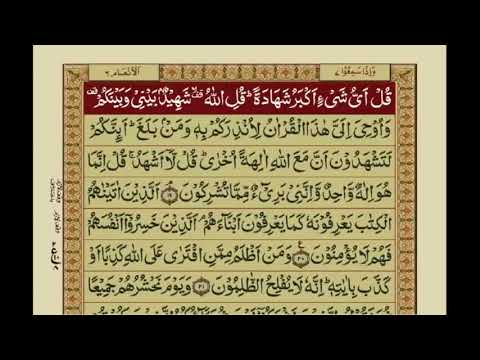 وَاِذَا سَمِعُوْا ٧
الْاَنْعَام ٦
قُلْ اَيُّ شَيْءٍ اَكْبَرُ شَهَادَةً ؕ قُلِ اللّٰهُ ۙ شَهِيْدٌۢ بَيْنِيْ وَبَيْنَكُمْ
وَاُوْحِيَ اِلَيَّ هٰذَا الْقُرْاٰنُ لِاُنْذِرَكُمْ بِهٖ وَمَنْۢ بَلَغَ ؕ اَىِٕنَّكُمْ
لَتَشْهَدُوْنَ اَنَّ مَعَ اللّٰهِ اٰلِهَةً اُخْرٰى ؕ قُلْ لَّاۤ اَشْهَدُ ۚ قُلْ اِنَّمَا
هُوَ اِلٰهٌ وَّاحِدٌ وَّاِنَّنِيْ بَرِيْٓءٌ مِّمَّا تُشْرِكُوْنَ ۘ ﴿۱۹﴾ اَلَّذِيْنَ اٰتَيْنٰهُمُ
الْكِتٰبَ يَعْرِفُوْنَهٗ كَمَا يَعْرِفُوْنَ اَبْنَآءَهُمْ ۘ اَلَّذِيْنَ خَسِرُوْۤا اَنْفُسَهُمْ
فَهُمْ لَا يُؤْمِنُوْنَ ﴿۲۰﴾ وَمَنْ اَظْلَمُ مِمَّنِ افْتَرٰى عَلَى اللّٰهِ كَذِبًا اَوْ
كَذَّبَ بِاٰيٰتِهٖ ؕ اِنَّهٗ لَا يُفْلِحُ الظّٰلِمُوْنَ ﴿۲۱﴾ وَيَوْمَ نَحْشُرُهُمْ جَمِيْعًا